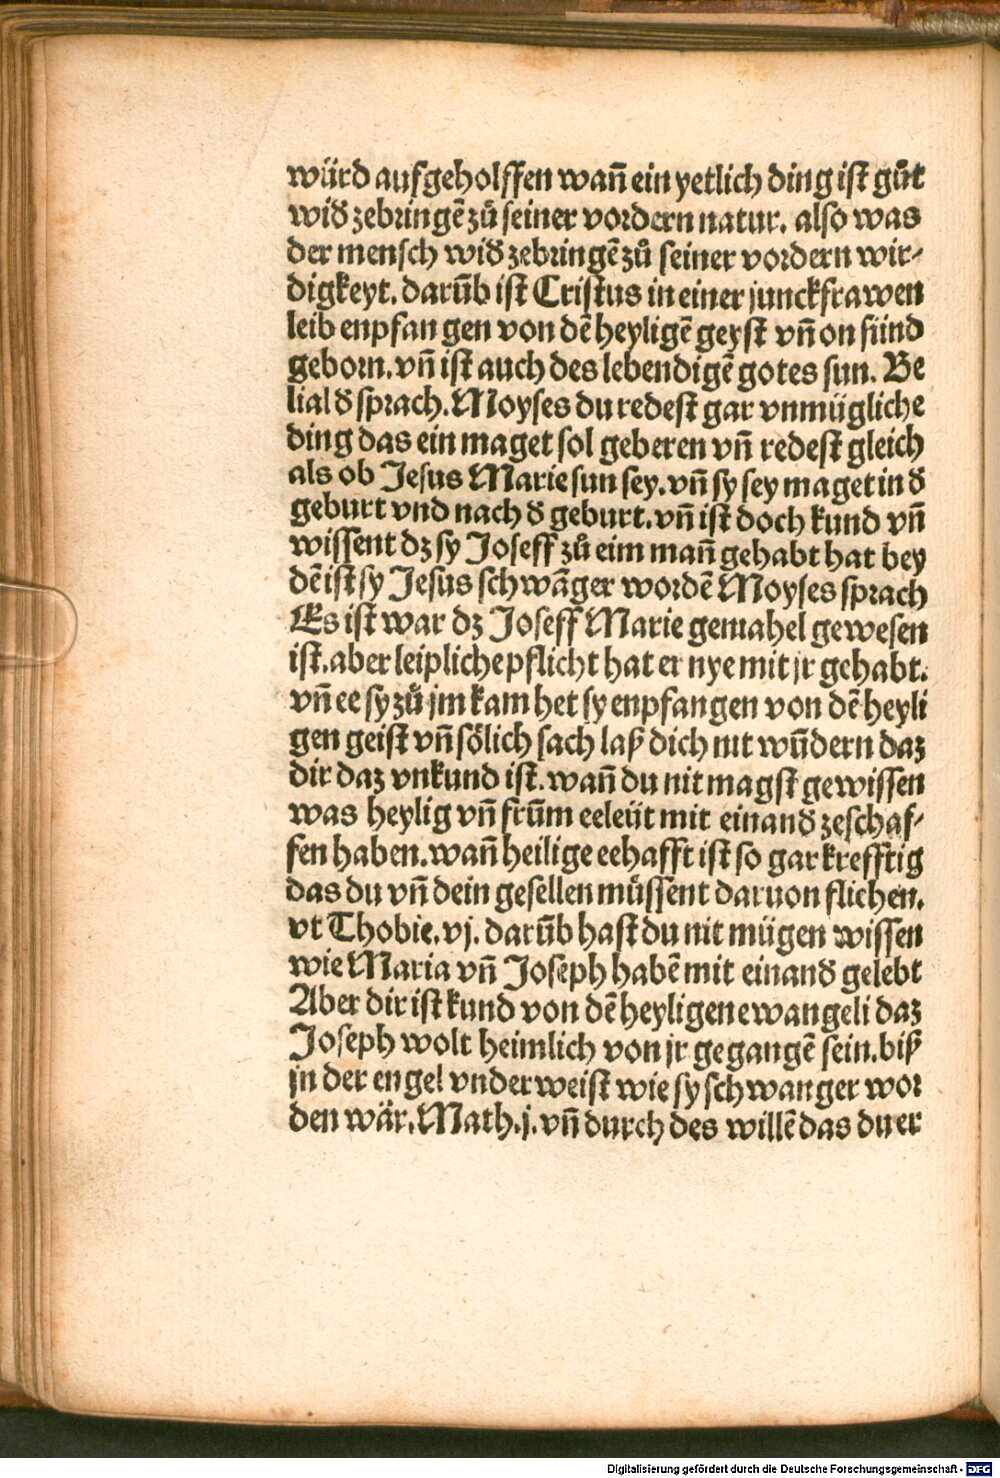 würd aufgeholffen wañ ein yetlich ding ist gůt
wiđ zebringẽ zů seiner vordern natur. also was
der mensch wiđ zebringẽ zů seiner vordern wir-
digkeyt. darũb ist Cristus in einer junckfrawen
leib enpfangen von dẽ heyligẽ geyst vñ on sünd
geborn. vñ ist auch des lebendigẽ gotes sun. Be
lial đ sprach. Moyses du redest gar vnmügliche
ding das ein maget sol geberen vñ redest gleich
als ob Jesus Marie sun sey. vñ sy sey maget in đ
geburt vnd nach đ geburt. vñ ist doch kund vñ
wissent dz sy Joseff zů eim mañ gehabt hat bey
dẽ ist sy Jesus schwãger wordẽ Moyses sprach
Es ist war dz Joseff Marie gemahel gewesen
ist. aber leipliche pflicht hat er nye mit jr gehabt.
vñ ee sy zů jm kam het sy enpfangen von dẽ heyli
gen geist vñ sölich sach laß dich nit wũdern daz
dir daz vnkund ist. wañ du nit magst gewissen
was heylig vñ frũm eeleüt mit einanđ zeschaf-
fen haben. wañ heilige eehafft ist so gar krefftig
das du vñ dein gesellen můssent daruon fliehen.
vt Thobie. vj. darũb hast du nit mügen wissen
wie Maria vñ Joseph habẽ mit einanđ gelebt
Aber dir ist kund von dẽ heyligen ewangeli daz
Joseph wolt heimlich von jr gegangẽ sein. biß
jn der engel vnderweist wie sy schwanger wor
den wär. Math. j. vñ durch des willẽ das du er
Digitalisierung gefördert durch die Deutsche Forschungsgemeinschaft - DFG